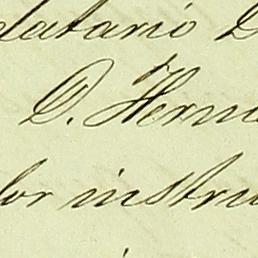 latario D
D. Herna
lor instru